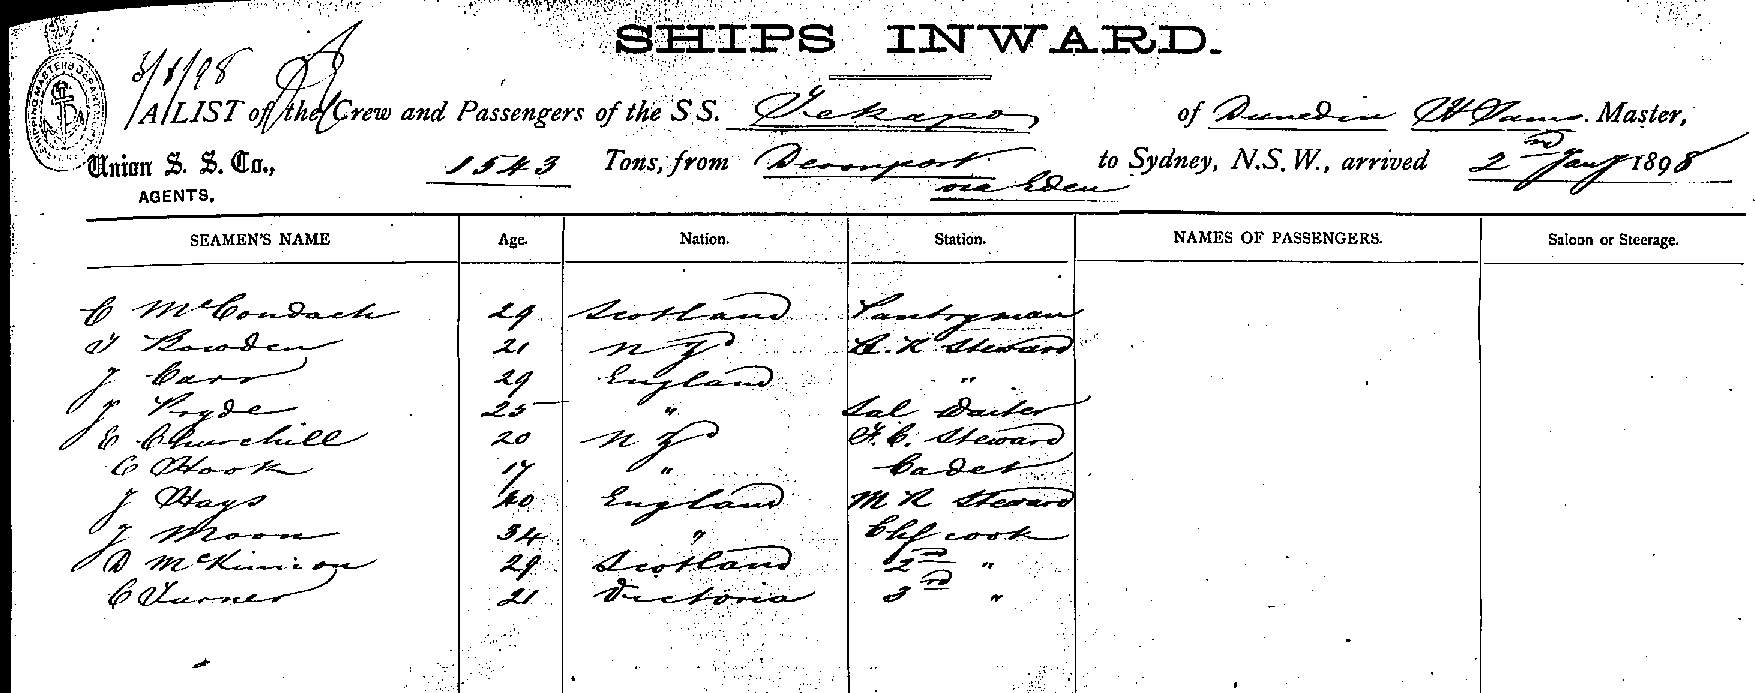 SHIPS INWARD.
3/1/98
A LIST of the Crew and Passengers of the S S. Tekapo of Dunedin W Sams. Master,
Union S. S. Co., 1543 Tons, from Devonport to Sydney, N.S.W., arrived 2nd Jany 1898
AGENTS. via Eden
SEAMEN'S NAME Age. Nation. Station. NAMES OF PASSENGERS. Saloon or Steerage.
C McCondach 29 Scotland Pantryman
Bowden 21 N Z B. R Steward
J Carr 29 England "
J Pryde 25 " Sal Waiter
E Churchill 20 N Z F. C. Steward
C Hook 17 " Cadet
J Hays 40 England M R Steward
J Moon 34 " Chf cook
D McKinnon 29 Scotland 2nd "
C Turner 21 Victoria 3rd "